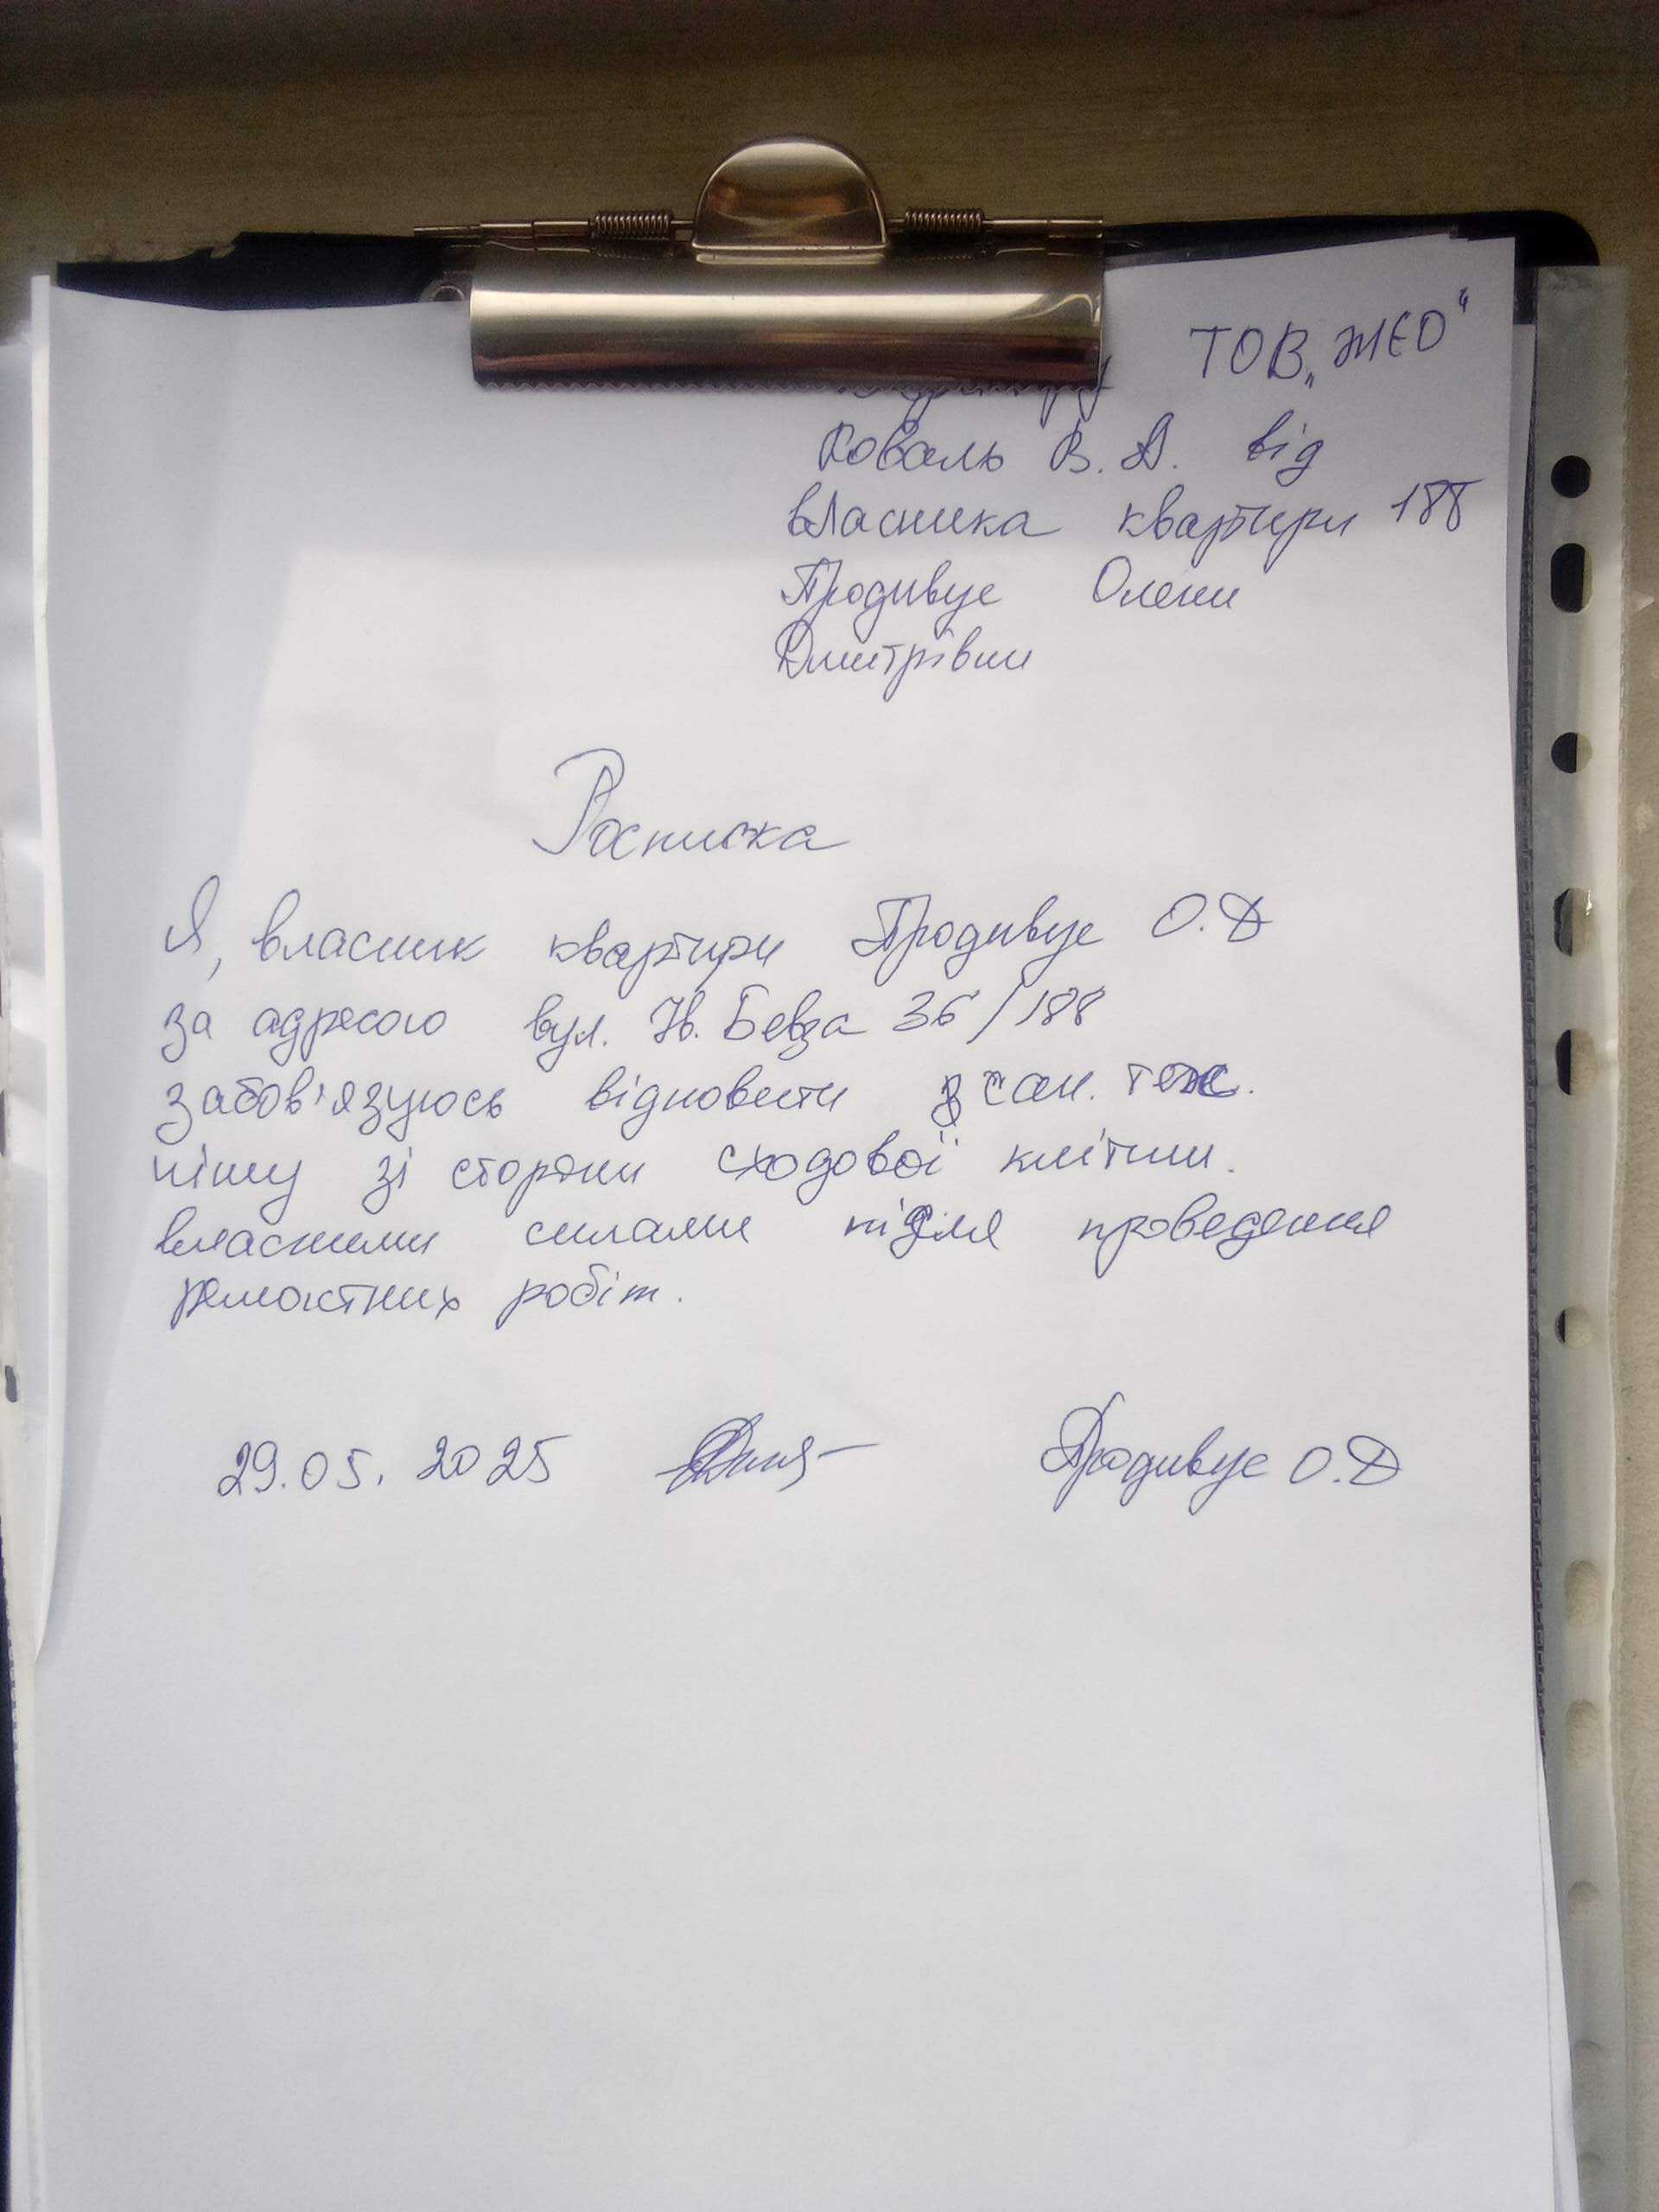 ТОВ „ЖЕО"
Коваль В. А. від
власника квартири 188
Продивус Олени
Дмитрівни
Расписка
Я, власник квартири Продивус О.Д
за адресою вул. Ів. Бевза 36/188
забов'язуюсь відновити сан. тех.
нішу зі сторони сходової клітини.
власними силами після проведення
ремонтних робіт.
29.05.2025 Продивус О.Д